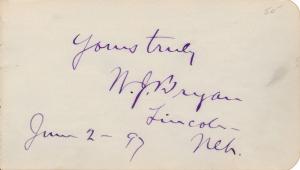 Yours truly
W. J. Bryan
Lincoln
June 2 - 97 Neb.